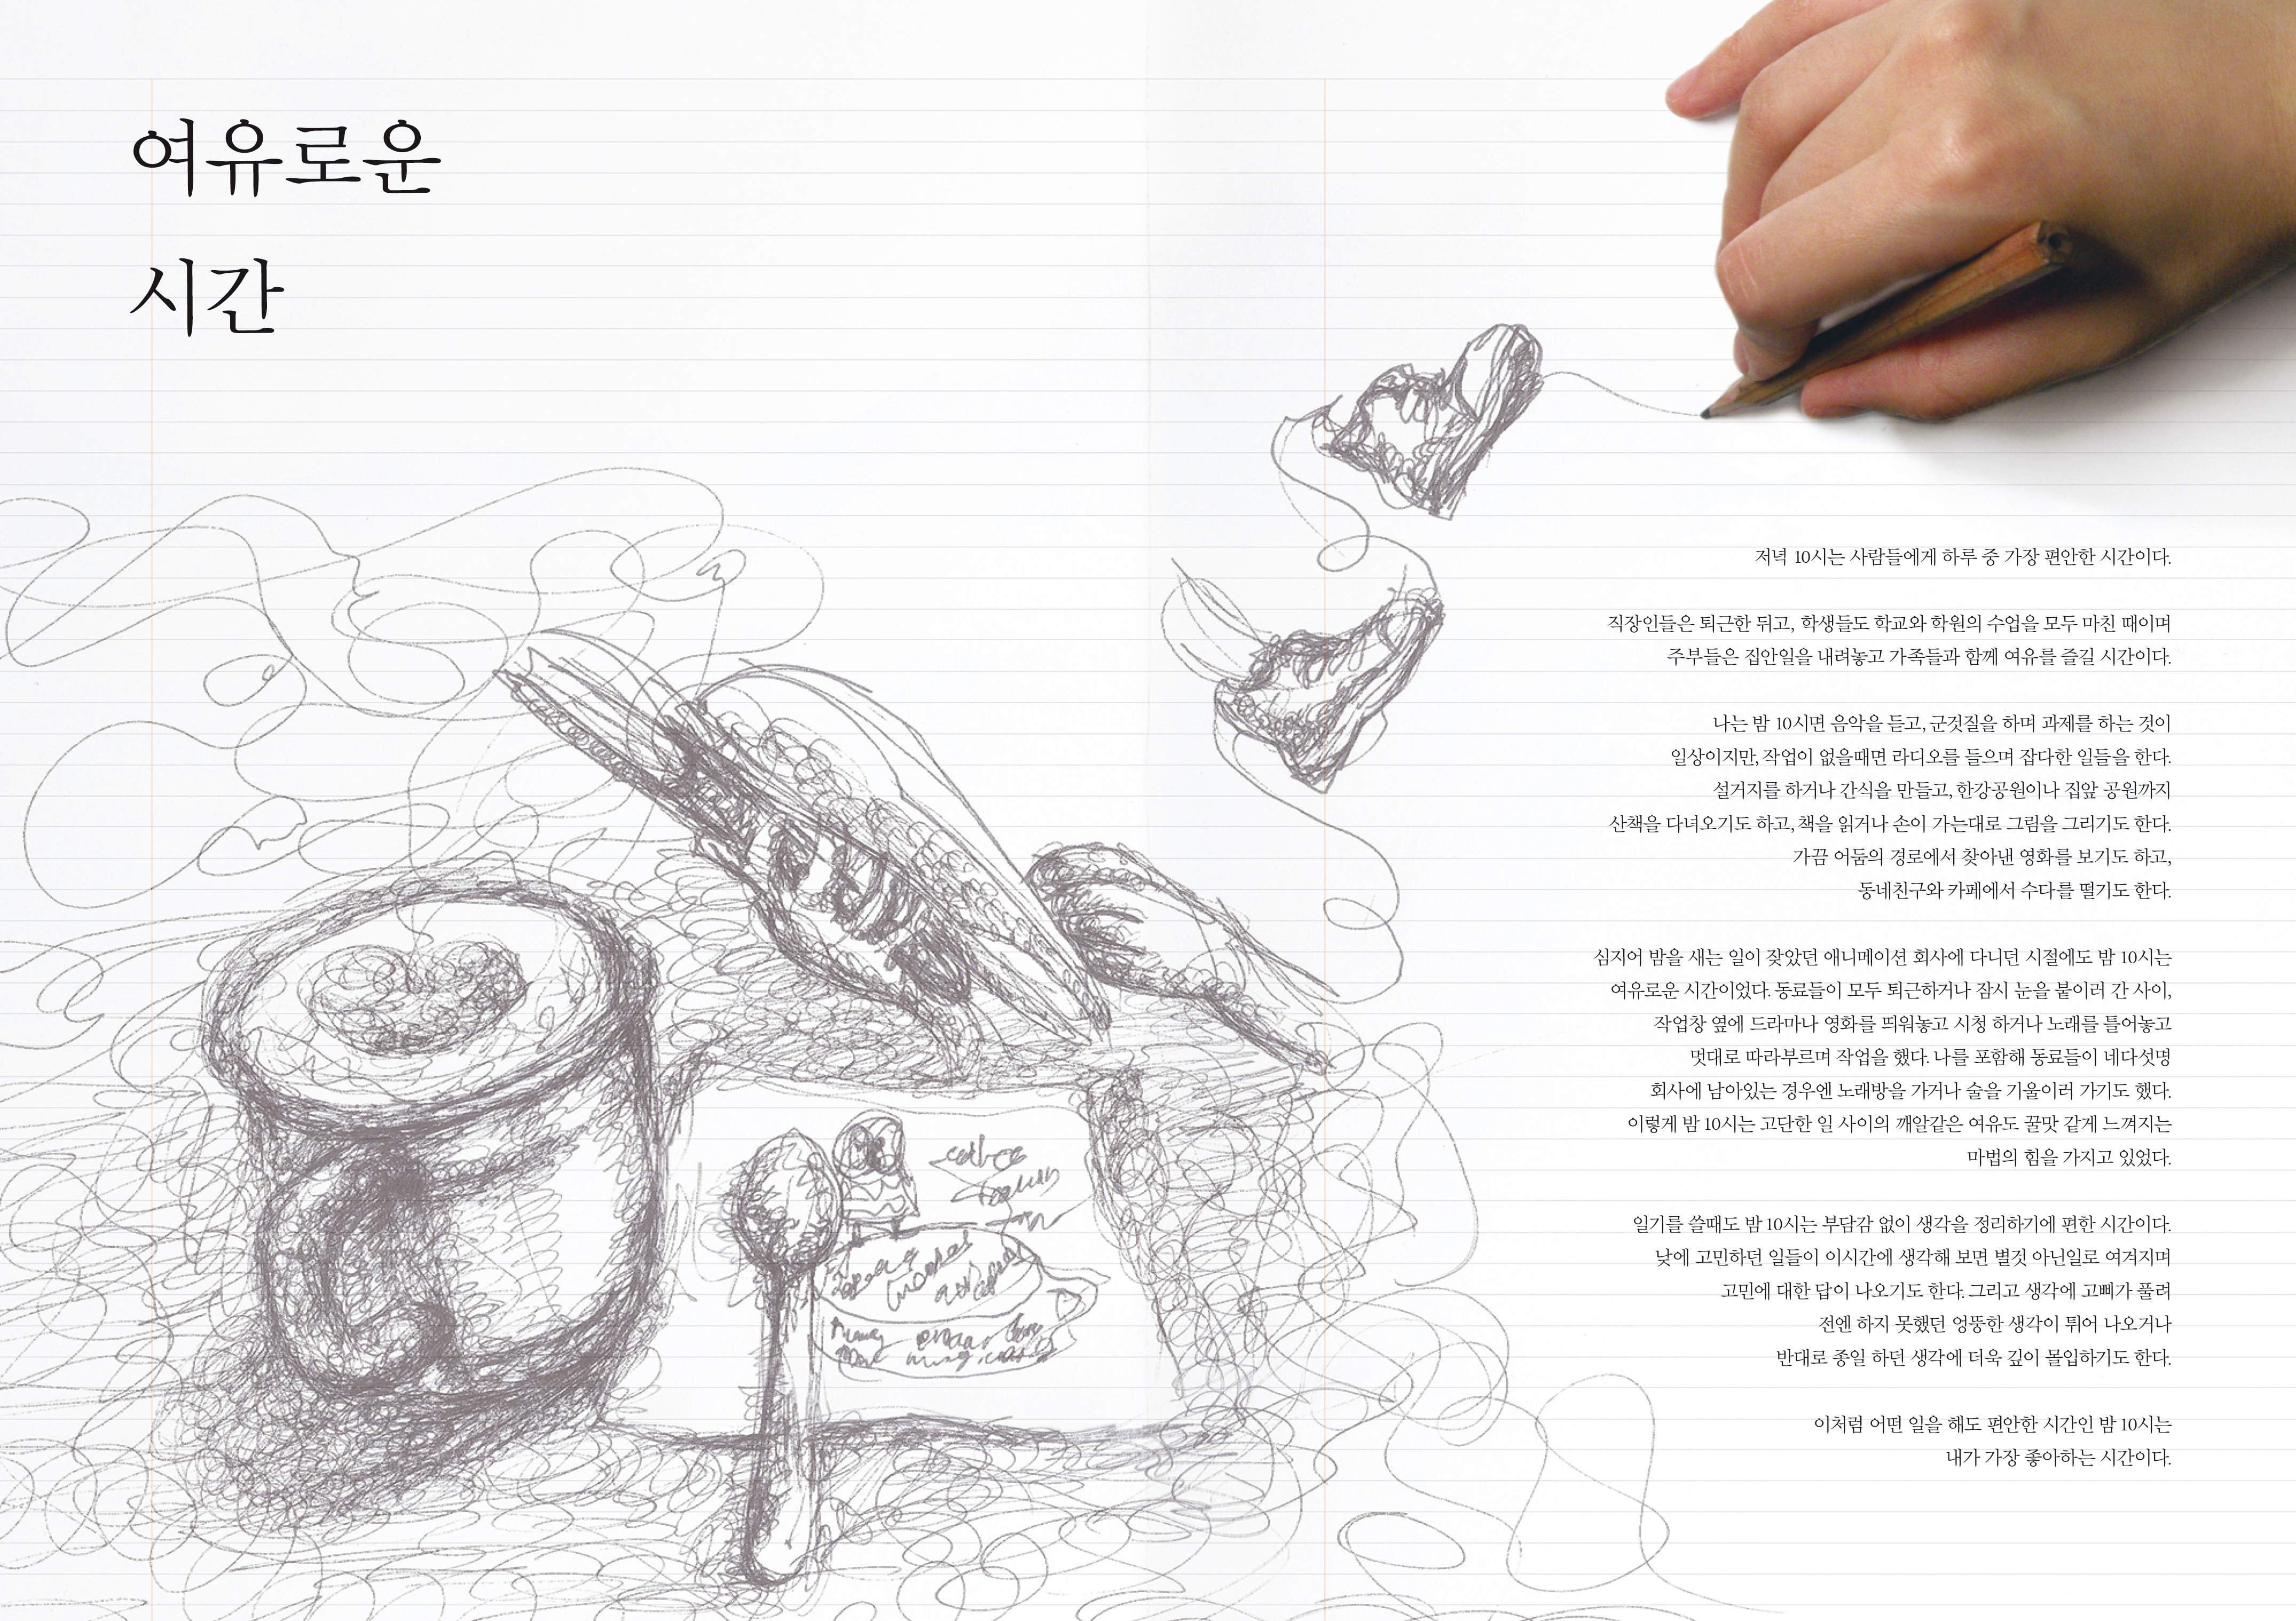 여유로운
시간
저녁 10시는 사람들에게 하루 중 가장 편안한 시간이다.
직장인들은 퇴근한 뒤고, 학생들도 학교와 학원의 수업을 모두 마친 때이며
주부들은 집안일을 내려놓고 가족들과 함께 여유를 즐길 시간이다.
나는 밤 10시면 음악을 듣고, 군것질을 하며 과제를 하는 것이
일상이지만, 작업이 없을때면 라디오를 들으며 잡다한 일들을 한다.
설거지를 하거나 간식을 만들고, 한강공원이나 집앞 공원까지
산책을 다녀오기도 하고, 책을 읽거나 손이 가는대로 그림을 그리기도 한다.
가끔 어둠의 경로에서 찾아낸 영화를 보기도 하고,
동네친구와 카페에서 수다를 떨기도 한다.
심지어 밤을 새는 일이 잦았던 애니메이션 회사에 다니던 시절에도 밤 10시는
여유로운 시간이었다. 동료들이 모두 퇴근하거나 잠시 눈을 붙이러 간 사이,
작업창 옆에 드라마나 영화를 띄워놓고 시청 하거나 노래를 틀어놓고
멋대로 따라부르며 작업을 했다. 나를 포함해 동료들이 네다섯명
회사에 남아있는 경우엔 노래방을 가거나 술을 기울이러 가기도 했다.
이렇게 밤 10시는 고단한 일 사이의 깨알같은 여유도 꿀맛 같게 느껴지는
마법의 힘을 가지고 있었다.
일기를 쓸때도 밤 10시는 부담감 없이 생각을 정리하기에 편한 시간이다.
낮에 고민하던 일들이 이시간에 생각해 보면 별것 아닌일로 여겨지며
고민에 대한 답이 나오기도 한다. 그리고 생각에 고삐가 풀려
전엔 하지 못했던 엉뚱한 생각이 튀어 나오거나
반대로 종일 하던 생각에 더욱 깊이 몰입하기도 한다.
이처럼 어떤 일을 해도 편안한 시간인 밤 10시는
내가 가장 좋아하는 시간이다.